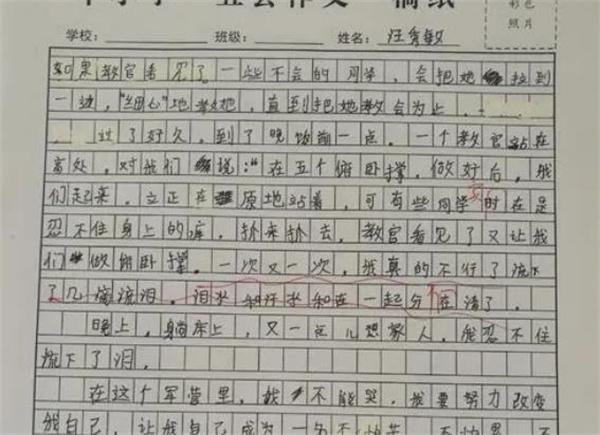 彩色
照片
学校： 班级： 姓名：汪秀敏
如果教官看见了。一些不会的同学，会把她拉到
一边，"细心"地教她，直到把她教会为止。
过了好久，到了晚饭前一点。一个教官站在
高处，对我们说："在五个俯卧撑。做好后，我
们起来。立正在原地站着，可有些同学时在是
忍不住身上的痒，扑来扑去。教官看见了又让我
们做俯卧撑。一次又一次，我真的不行了流下
了几滴流泪。泪水和汗水和在一起分不清了。
晚上，躺床上，又一远儿想家人，我忍不住
流下了泪。
在这个军营里，我不能哭，我要努力改变
我自己，让我自己成为一名不怕苦，不怕累，不